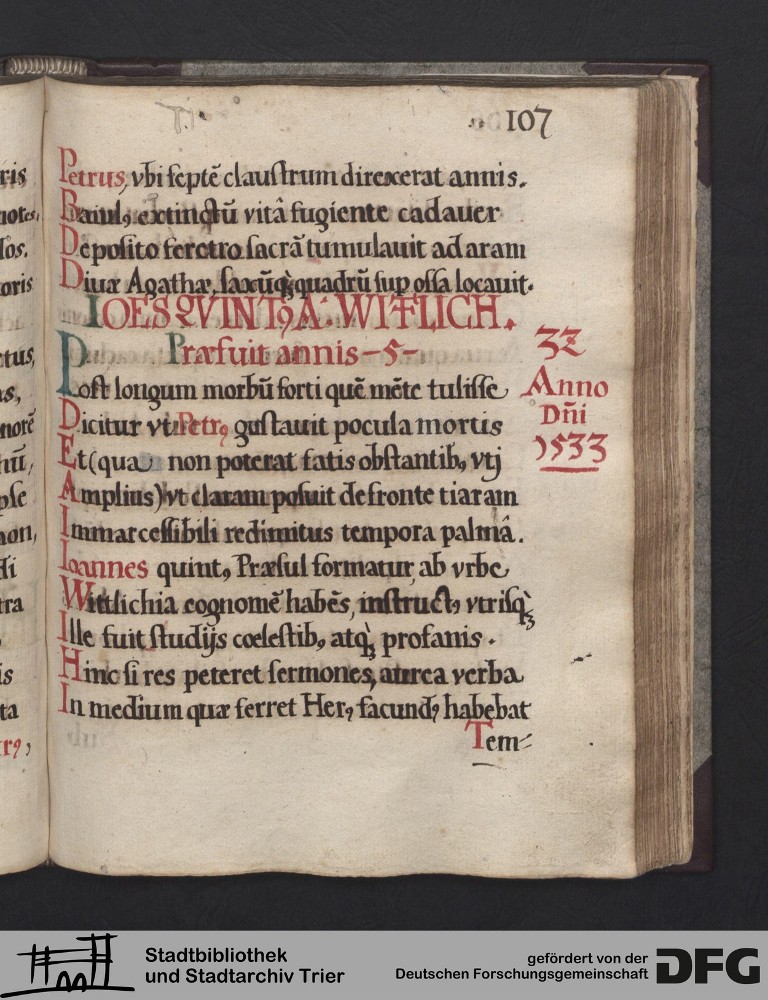 107
Petrus, vbi septē claustrum direxerat annis.
Baiulꝰ, extinctū vitâ fugiente cadauer
Deposito feretro sacrā tumulauit ad aram
Diuæ Agathæ, saxūq̢ quadrū sup ossa locauit.
IOES QVINTꝰ A: WITTLICH.
Præfuit annis -5-
Post longum morbū forti quē mēte tulisse
Dicitur vt Petrꝰ gustauit pocula mortis
Et (qua non poterat fatis obstantibꝰ vtj
Amplius) vt claram posuit de fronte tiaram
Immarcessibili redimitus tempora palmâ.
Ioannes quintꝰ Præsul formatur ab vrbe
Wittlichia cognomē habēs, instructꝰ vtrisq̢
Ille fuit studijs cœlestibꝰ atq̢ profanis.
Hinc si res peteret sermones, aurea verba
In medium quæ ferret Herꝰ facundꝰ habebat
Tem-
32
Anno
Dñi
1533
ris
notes,
los.
oris
ctus,
as,
morē
hū,
pse
non,
di
tra
is
ta
trꝰ,
Stadtbibliothek
und Stadtarchiv Trier
gefördert von der
Deutschen Forschungsgemeinschaft
DFG